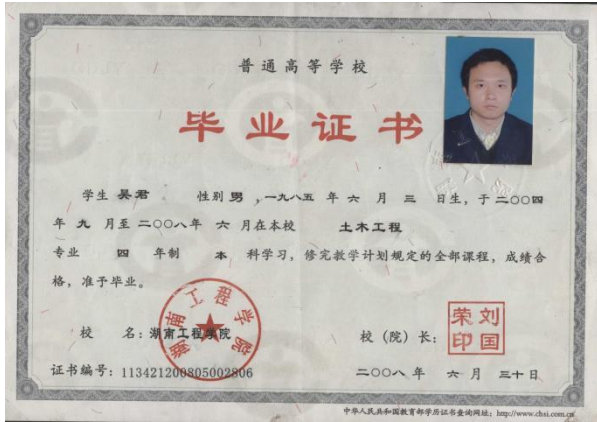 普通高等学校
毕业证书
学生 吴君 性别 男 ,一九八五 年 六 月 三 日生,于二〇〇四
年 九 月至二〇〇八年 六 月在本校 土木工程
专业 四 年制 本 科学习,修完教学计划规定的全部课程,成绩合
格,准予毕业。
湖南工程学院
校 名:湖南工程学院
校(院)长:
刘国荣印
证书编号:113421200805002806
二〇〇八年 六 月 三十日
中华人民共和国教育部学历证书查询网址:http://www.chsi.com.cn